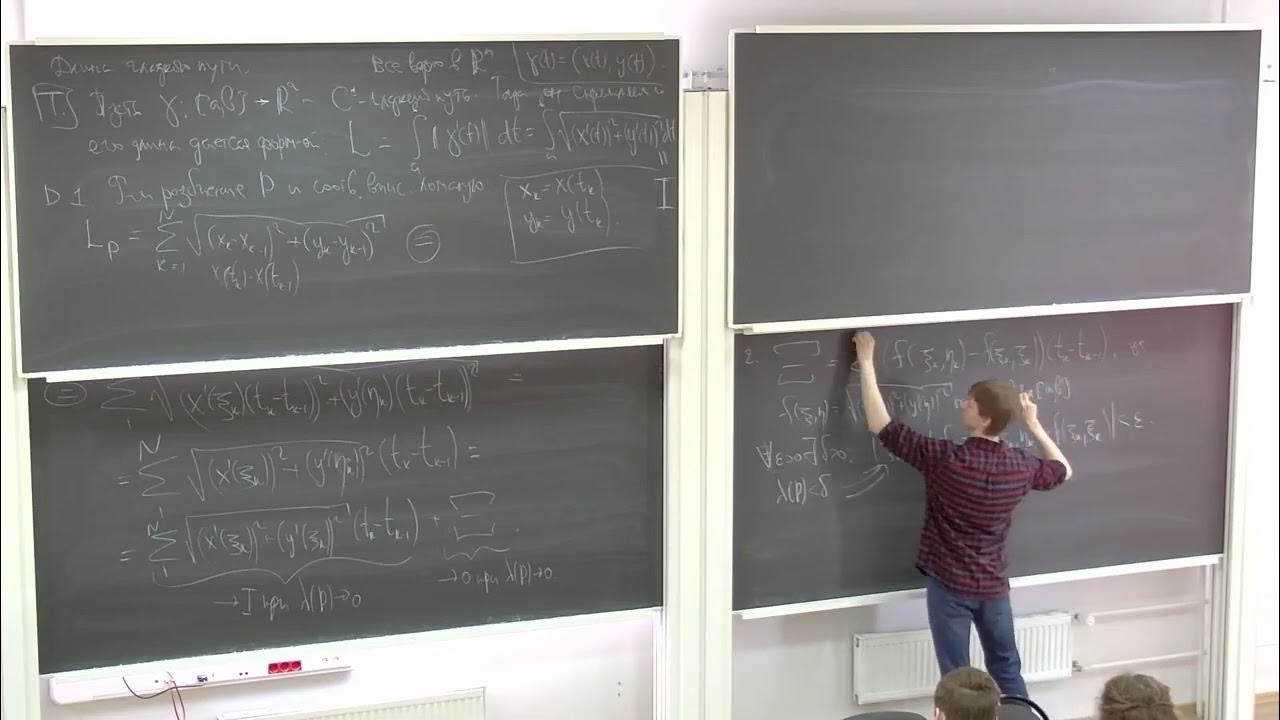 Длина гладкого пути. Все верно в ℝⁿ γ(t) = (x(t), y(t)).
[T.] Пусть γ: [a,b] → ℝ² – C¹-гладкий путь. Тогда он спрямляем и
его длина дается форм-ой L = ∫ₐᵇ ‖γ'(t)‖ dt = ∫ₐᵇ √((x'(t))² + (y'(t))²) dt
= I
D 1 разбиение P и соотв. впис. ломаную
x_k = x(t_k)
y_k = y(t_k).
L_P = Σ_{k=1}^{N} √((x_k - x_{k-1})² + (y_k - y_{k-1})²) ⊜
x(t_k) - x(t_{k-1})
⊜ Σ₁ √((x'(ξ_k)(t_k - t_{k-1}))² + (y'(η_k)(t_k - t_{k-1}))²) =
= Σ₁ᴺ √((x'(ξ_k))² + (y'(η_k))²) (t_k - t_{k-1}) =
= Σ₁ᴺ √((x'(ξ_k))² + (y'(ξ_k))²) (t_k - t_{k-1}) + Ξ.
→ I при λ(P)→0 → 0 при λ(P)→0.
2. Ξ = (f(ξ_k, η_k) - f(ξ_k, ξ_k))(t_k - t_{k-1}),
f(ξ,η) = √((x'(ξ))² + (y'(η))²) [a,b]
∀ε>0 ∃δ>0. f(ξ_k, ξ_k)| < ε.
λ(P) < δ